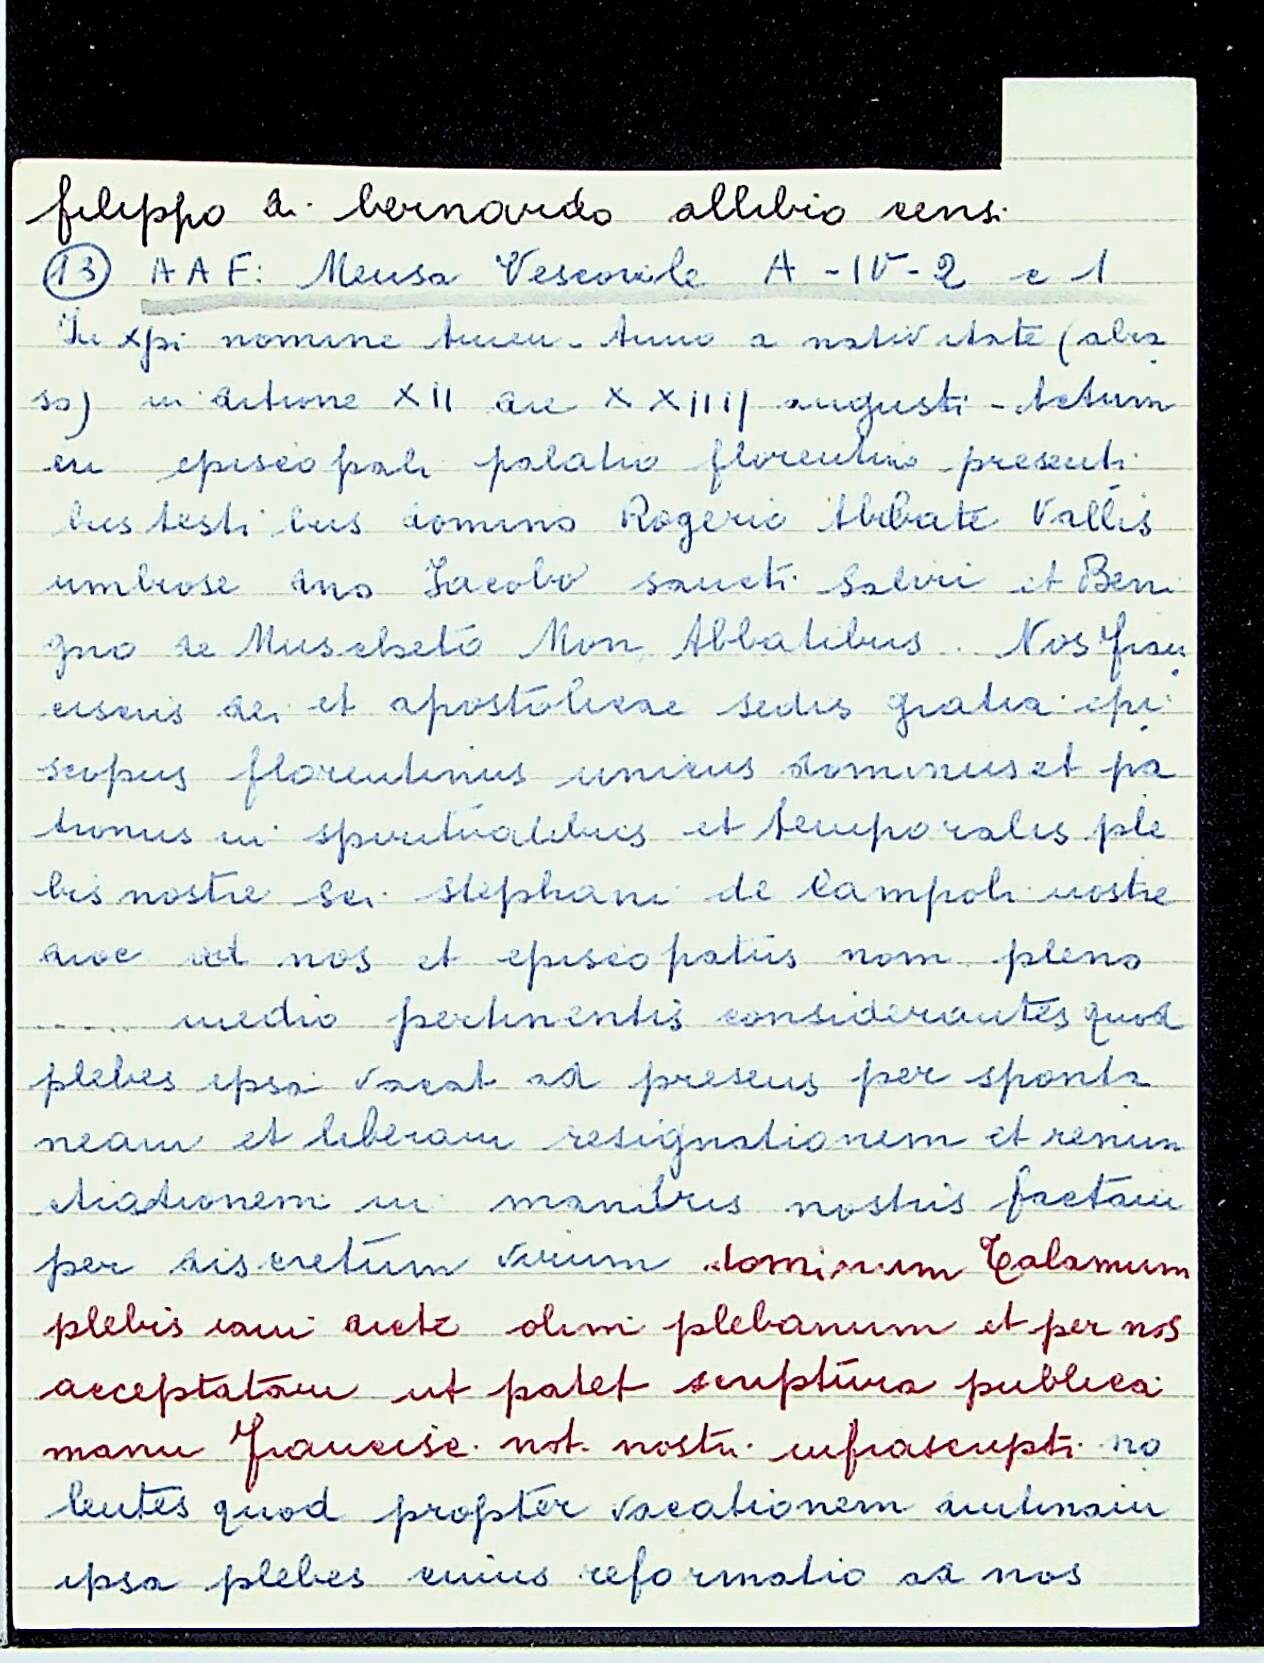 filippo di bernardo allibio censi
13 AAF: Mensa Vescovile A-IV-2 c 1
In xpi nomine Amen. Anno a nativitate (abra
so) indictione XII die XXIIII augusti - Actum
in episcopali palatio florentino presenti
bus testibus domino Rogerio Abbate Vallis
umbrose dno Jacobo sancti Salvi et Beni
gno de Muscheto Mon. Abbatibus. Nos fran
ciscus dei et apostolicae sedis gratia epi
scopus florentinus unicus dominus et pa
tronus in spiritualibus et temporalis ple
bis nostre sci. Stephani de Campoli nostre
dioc ad nos et episcopatus nom. pleno
..... medio pertinentis considerantes quod
plebes ipsa vacat ad presens per sponta
neam et liberam resignationem et renun
ctiationem in manibus nostris factam
per discretum virum dominum Calamum
plebis iam dicte olim plebanum et per nos
acceptatam ut patet scriptura publica
manu Francisc. not. nostri infrascripti no
lentes quod propter vacationem diutinam
ipsa plebes cuius reformatio ad nos